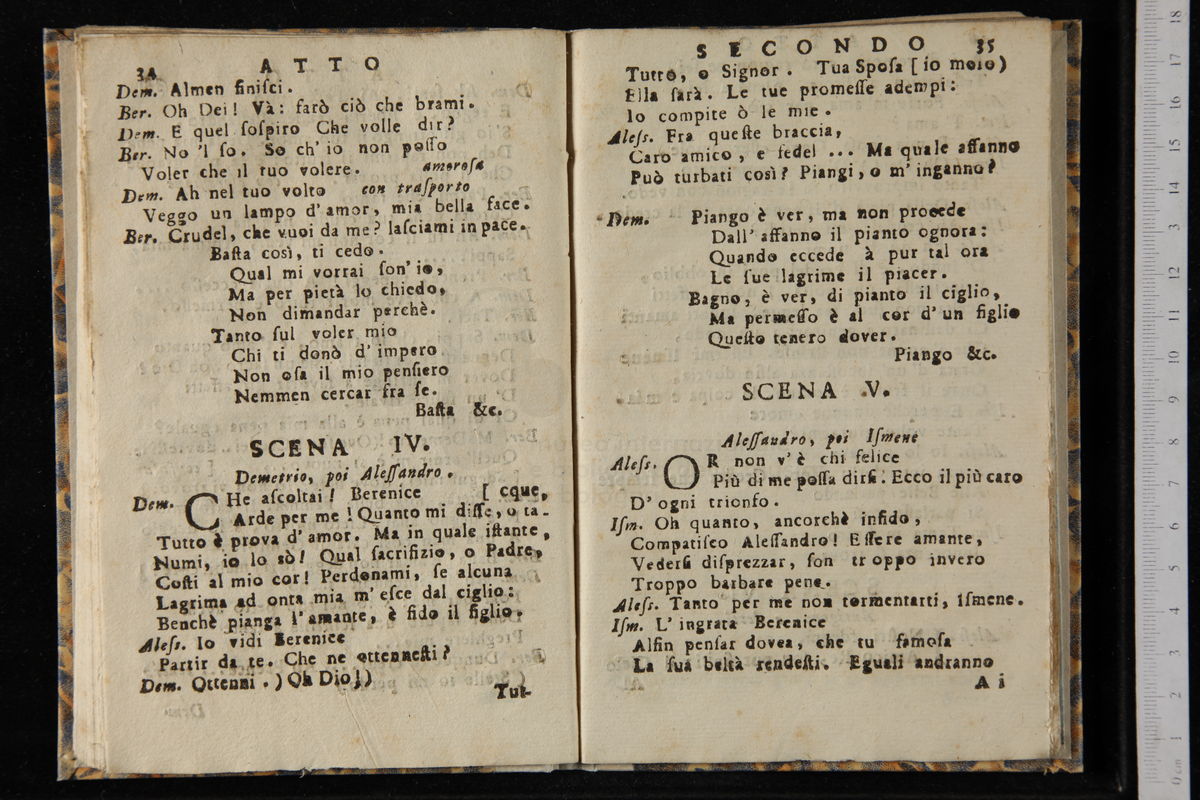 34 ATTO
Dem. Almen finiſci.
Ber. Oh Dei! Và: farò ciò che brami.
Dem. E quel ſoſpiro Che volle dir?
Ber. No 'l ſo. So ch' io non poſſo
Voler che il tuo volere. amoroſa
Dem. Ah nel tuo volto con traſporto
Veggo un lampo d' amor, mia bella face.
Ber. Crudel, che vuoi da me? laſciami in pace.
Baſta così, ti cedo.
Qual mi vorrai ſon' io,
Ma per pietà lo chiedo,
Non dimandar perchè.
Tanto ſul voler mio
Chi ti donò d' impero
Non oſa il mio penſiero
Nemmen cercar fra ſe.
Baſta &c.
SCENA IV.
Demetrio, poi Aleſſandro.
Dem. CHe aſcoltai! Berenice [ cque,
Arde per me! Quanto mi diſſe, o ta-
Tutto è prova d' amor. Ma in quale iſtante,
Numi, io lo sò! Qual ſacrifizio, o Padre,
Coſti al mio cor! Perdonami, ſe alcuna
Lagrima ad onta mia m' eſce dal ciglio:
Benchè pianga l' amante, è fido il figlio.
Aleſs. Io vidi Berenice
Partir da te. Che ne ottenneſti?
Dem. Ottenni.) Oh Dio!)
Tut-
SECONDO 35
Tutto, o Signor. Tua Spoſa [ io moio)
Ella ſarà. Le tue promeſſe adempi:
Io compite ò le mie.
Aleſs. Fra queſte braccia,
Caro amico, e fedel ... Ma quale affanno
Può turbati così? Piangi, o m' inganno?
Dem. Piango è ver, ma non procede
Dall' affanno il pianto ognora:
Quando eccede à pur tal ora
Le ſue lagrime il piacer.
Bagno, è ver, di pianto il ciglio,
Ma permeſſo è al cor d' un figlio
Queſto tenero dover.
Piango &c.
SCENA V.
Aleſſandro, poi Iſmene
Aleſs. OR non v' è chi felice
Più di me poſſa dirſi. Ecco il più caro
D' ogni trionfo.
Iſm. Oh quanto, ancorchè infido,
Compatiſco Aleſſandro! Eſſere amante,
Vederſi diſprezzar, ſon troppo invero
Troppo barbare pene.
Aleſs. Tanto per me non tormentarti, Iſmene.
Iſm. L' ingrata Berenice
Alfin penſar dovea, che tu famoſa
La ſua beltà rendeſti. Eguali andranno
A i